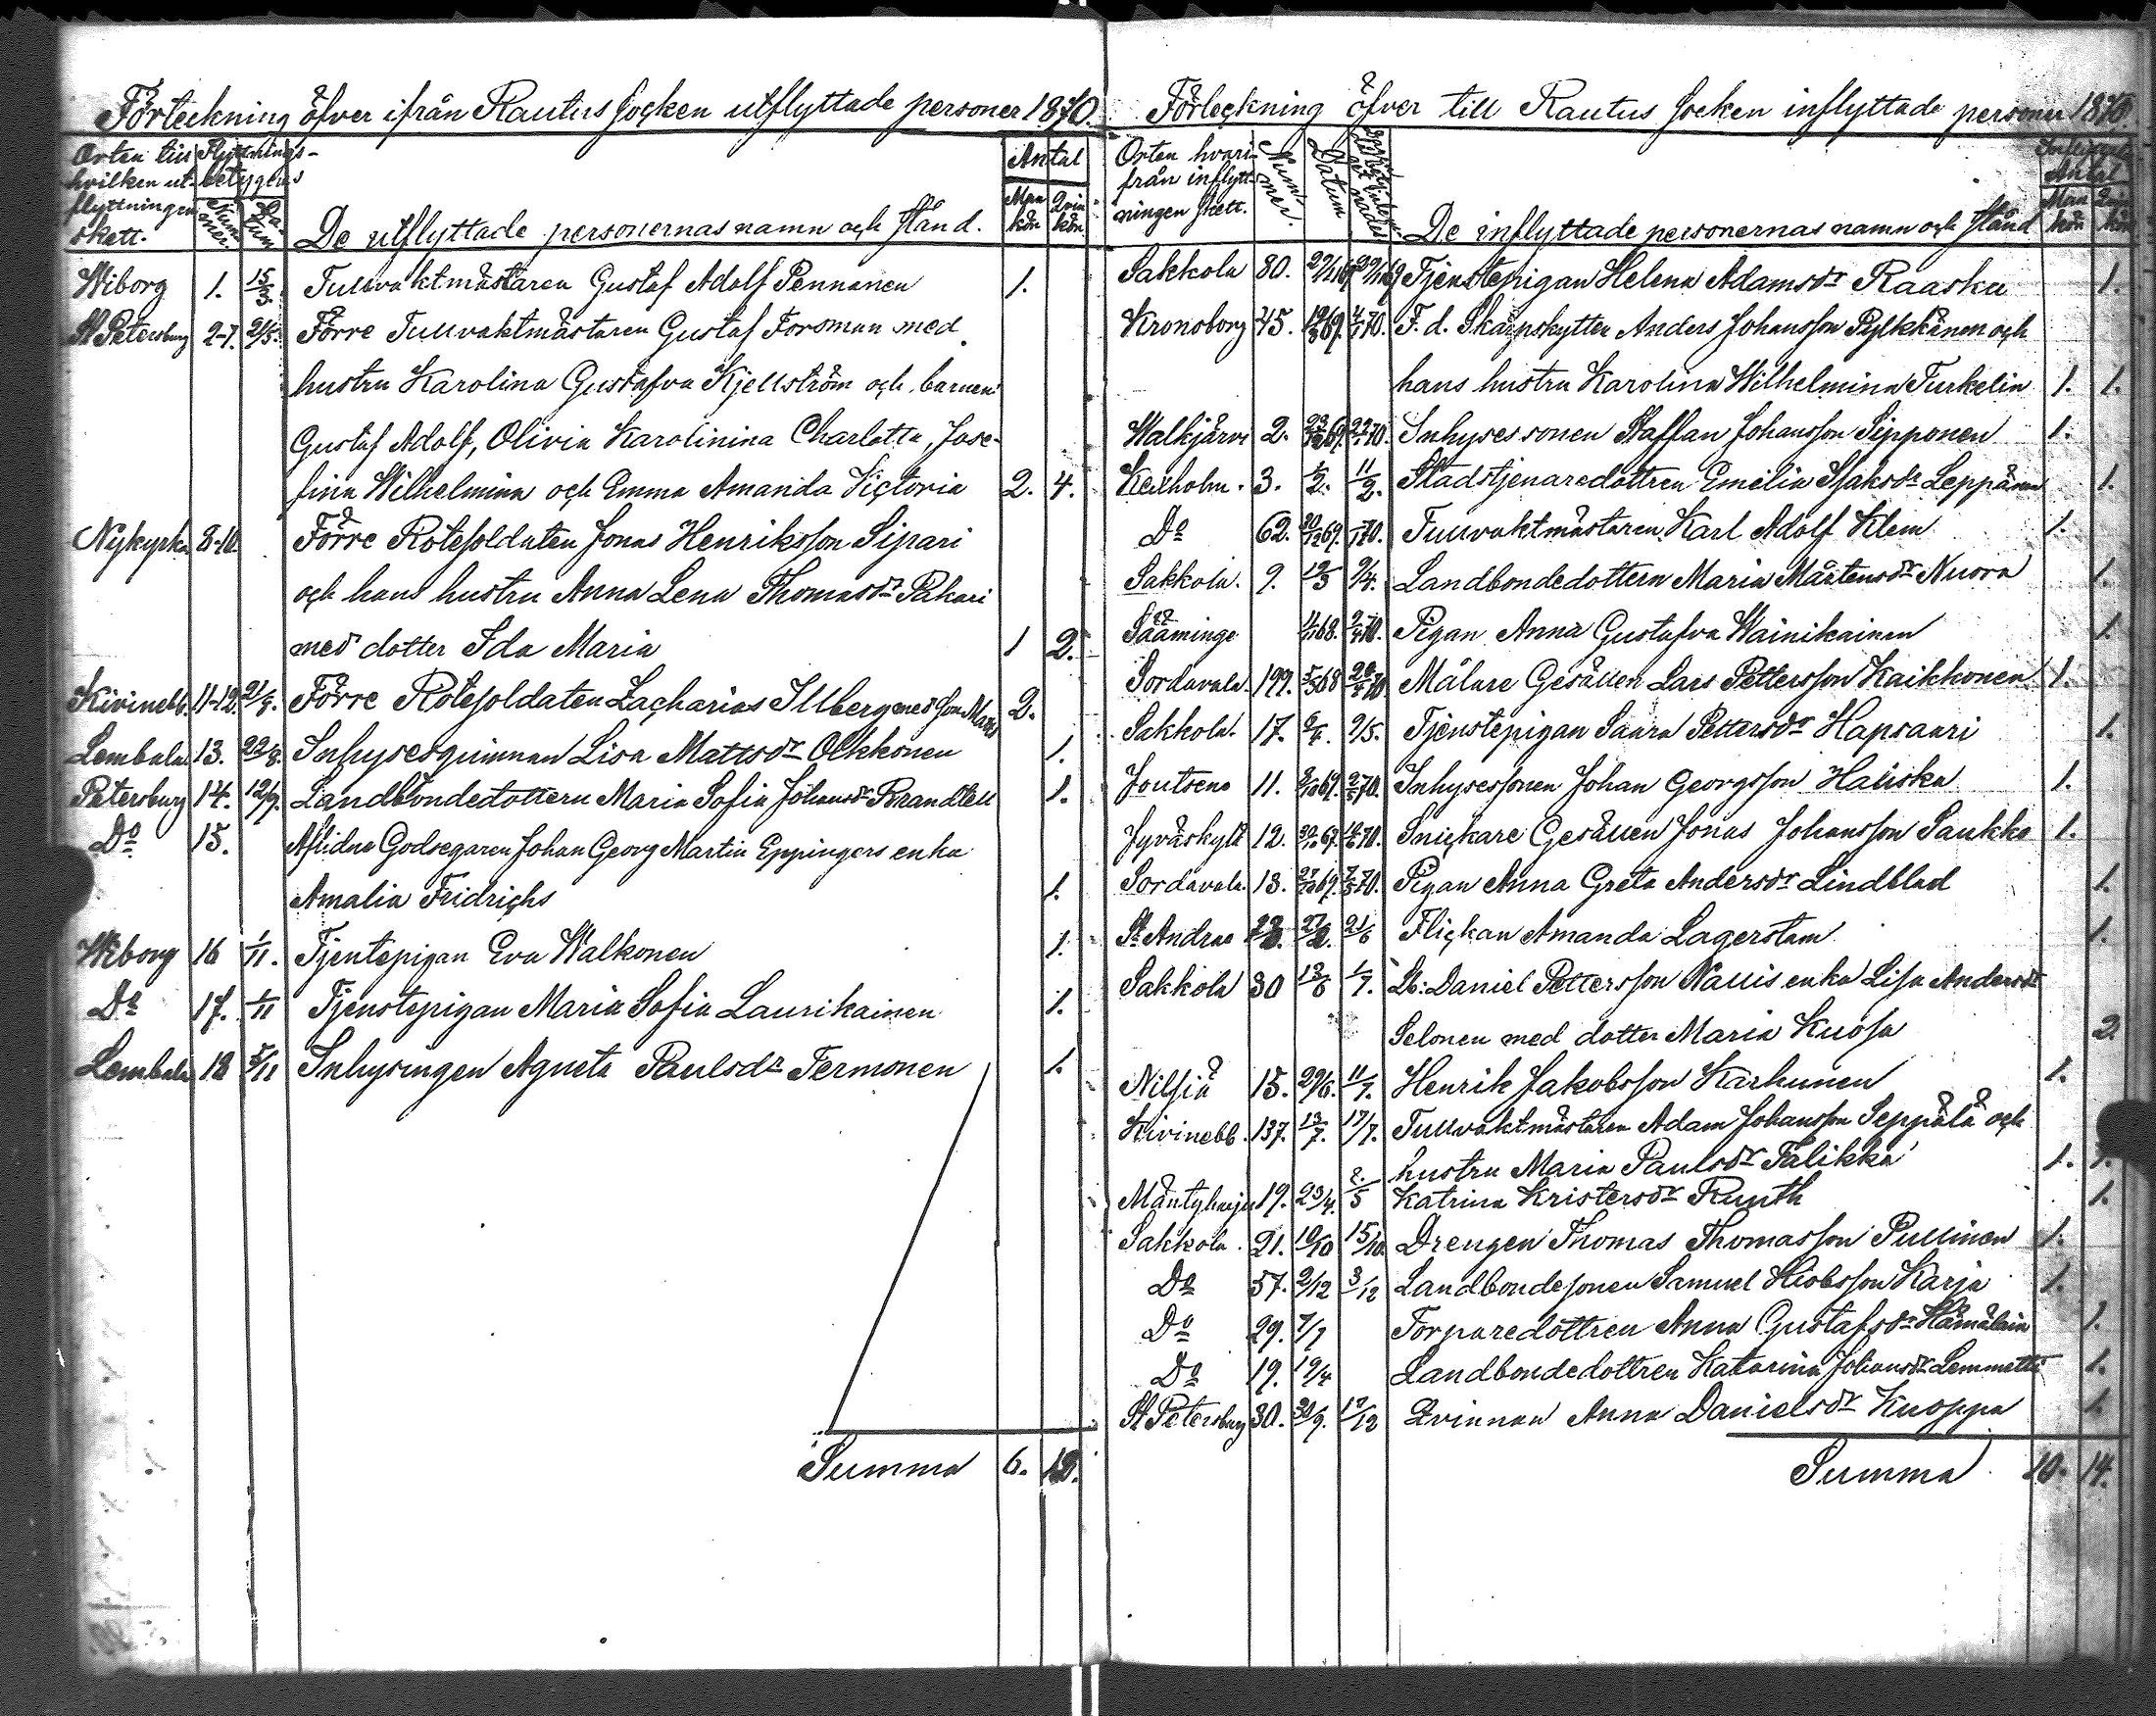 Förteckning öfver ifrån Rautus Socken utflyttade personer 1870.
Orten till hvilken utflyttningen skett. Flyttningsbetygens Nummer. Datum De utflyttade personernas namn och stånd. Antal Mankön Qvinkön.
Wiborg 1. 15/3. Tullvaktmästaren Gustaf Adolf Pennanen 1.
St Petersburg 2-7. 2/5. Förre Tullvaktmästaren Gustaf Forsman med
hustru Karolina Gustafva Kjellström och barnen
Gustaf Adolf, Olivia Karolinina Charlotta, Jose-
fina Wilhelmina och Emma Amanda Victoria 2. 4.
Nykyrka 8-10. Förre Rotesoldaten Jonas Henriksson Sipari
och hans hustru Anna Lena Thomasdr Pakari
med dotter Ida Maria 1 2.
Kivinebb. 11-12. 21/8. Förre Rotesoldaten Zacharias Illberg med Son Matts 2.
Lembala 13. 22/8. Inhysesqvinnan Lisa Mattsdr Olkkonen 1.
Petersburg 14. 12/9. Landbondedottern Maria Sofia Johansdr Brandtell 1.
Do 15. Aflidne Godsegaren Johan Georg Martin Eppingers enka
Amalia Fridrichs 1.
Wiborg 16 1/11. Tjentepigan Eva Walkonen 1.
Do 17. 1/11 Tjenstepigan Maria Sofia Laurikainen 1.
Lembala 18 5/11 Inhysingen Agneta Paulsdr Termonen 1.
Summa 6. 12.
Förteckning öfver till Rautus Socken inflyttade personer 1870.
Orten hvarifrån inflyttningen skett. Nummer. Datum De inflyttade personernas namn och Stånd Antal Mankön Qvinkön
Sakkola 80. 29/11 69 Tjenstepigan Helena Adamsdr Raasku 1.
Kronoborg 45. 69. 4/1 70. F. d. Skarpskytten Anders Johansson Pylkkänen och
hans hustru Karolina Wilhelmina Turkelin 1. 1.
Walkjärvi 2. 69. 70. Inhysessonen Staffan Johansson Sipponen 1.
Kexholm. 3. 1/2. 11/2. Stadstjenaredottren Emelia Isaksdr Leppänen 1.
Do 62. 30/12 69. 70. Tullvaktmästaren Karl Adolf Klem 1.
Sakkola. 9. 19/3 9/4. Landbondedottern Maria Mårtensdr Nuora 1.
Sääminge 68. 70. Pigan Anna Gustafva Wainikainen 1.
Sordavala. 199. 68 70 Målare Gesällen Lars Pettersson Kaikkonen 1.
Sakkola. 17. 2/5. Tjenstepigan Saara Pettersdr Hapsaari 1.
Joutseno 11. 69. 70. Inhysessonen Johan Georgsson Haliska 1.
Jyväskylä 12. 67. 70. Snickare Gesällen Jonas Johansson Saukko 1.
Sordavala. 13. 69. 70. Pigan Anna Greta Andersdr Lindblad 1.
St Andrae 21/6 Flickan Amanda Lagerstam 1.
Sakkola 30 13/6 1/7. Lb: Daniel Pettersson Nallis enka Lisa Andersdr
Selonen med dotter Maria Kuosa 2
Nilsiä 15. 29/6. 11/7. Henrik Jakobsson Karhunen 1.
Kivinebb. 137. 13/7. 17/7. Tullvaktmästaren Adam Johansson Seppälä och
hustru Maria Paulsdr Talikka 1. 1.
Mäntyharju 19. 23/4. 2/5 Katrina Kristersdr Ruuth 1.
Sakkola. 21. 10/10 15/10 Drengen Thomas Thomasson Pullinen 1.
Do 57. 2/12 3/12 Landbondesonen Samuel Jakobsson Karja 1.
Do 29. 7/7 Torparedottren Anna Gustafsdr Hämäläin 1.
Do 19. 19/4 Landbondedottren Katarina Johansdr Lemmetti 1.
St Petersburg 30. 30/9. 17/12 Qvinnan Anna Danielsdr Kuoppa 1
Summa 10. 14.